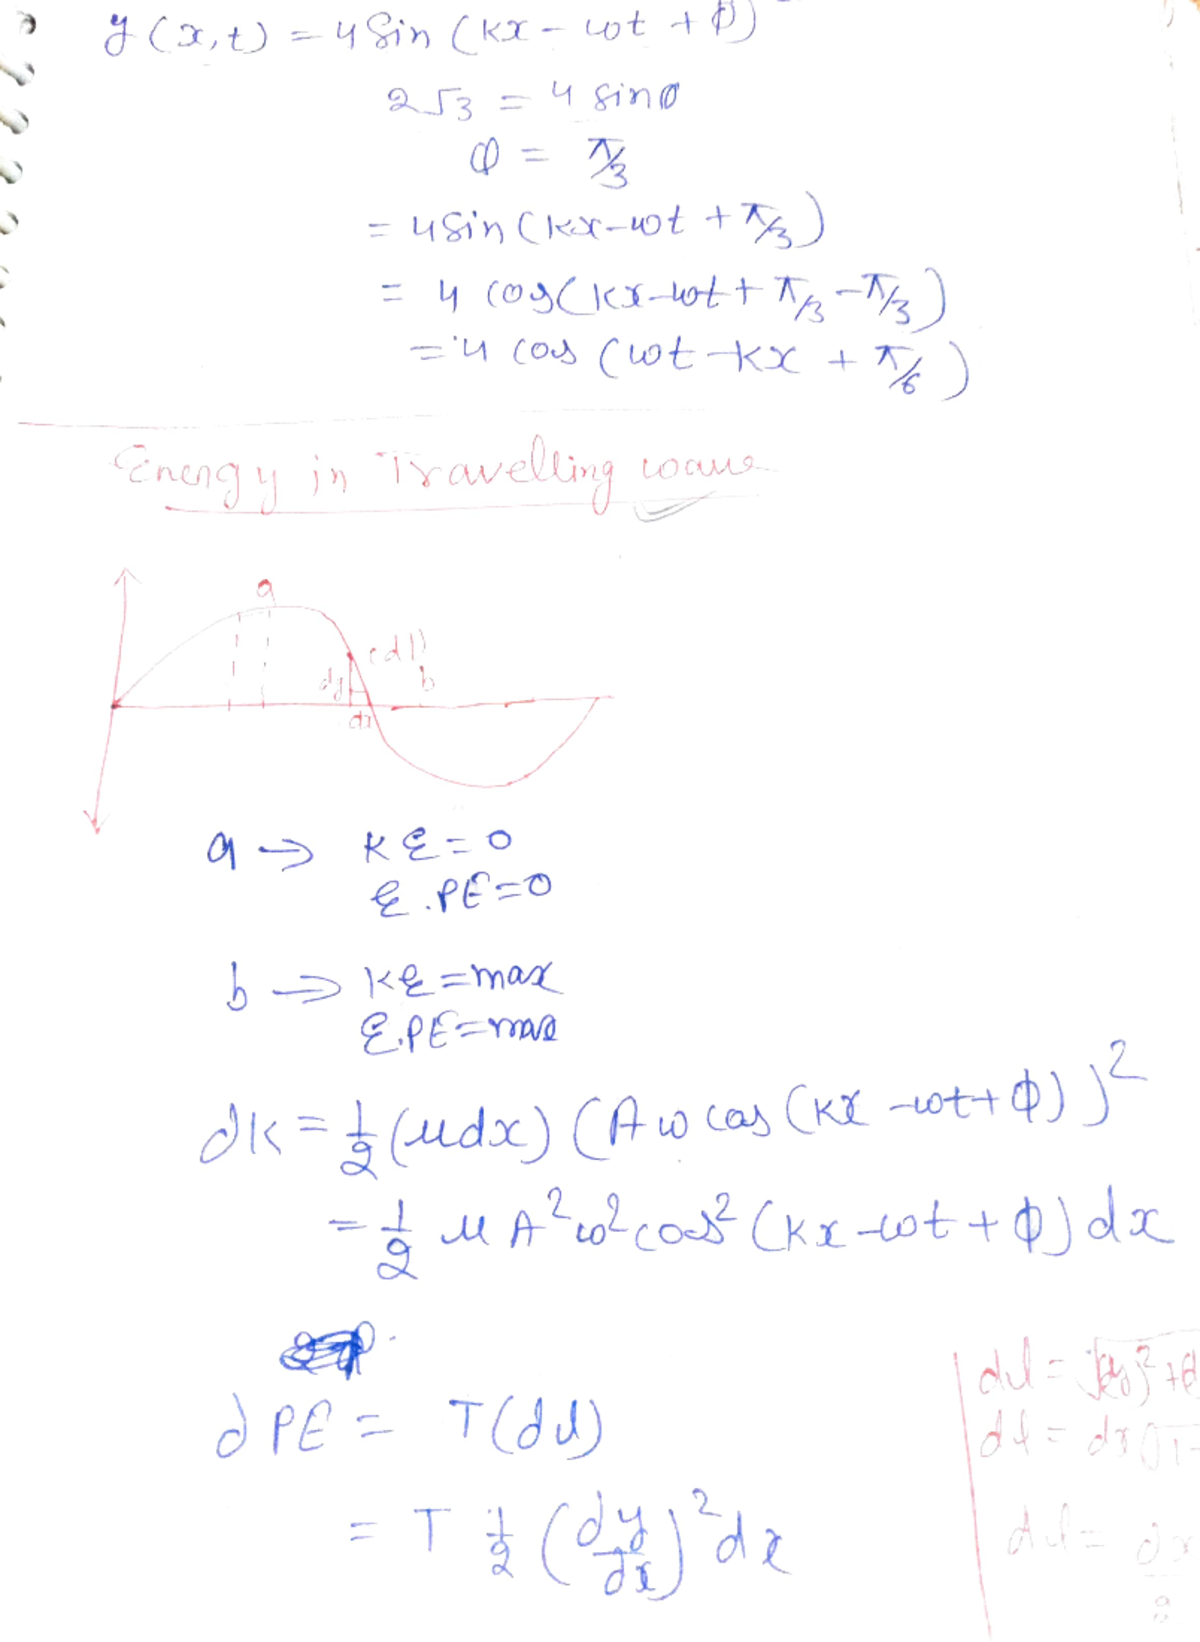 y(x,t) = 4 Sin (kx - ωt + φ)
2√3 = 4 sinφ
φ = π/3
= 4 Sin (kx - ωt + π/3)
= 4 cos (kx - ωt + π/3 - π/3)
= 4 cos (ωt - kx + π/6)
Energy in Travelling wave
a
(dl)
dy
b
dx
a → KE = 0
E.PE = 0
b → KE = max
E.PE = max
dK = 1/2 (μdx) (Aω cos (kx - ωt + φ))²
= 1/2 μ A²ω² cos² (kx - ωt + φ) dx
dPE = T(dl)
= T 1/2 (dy/dx)² dx